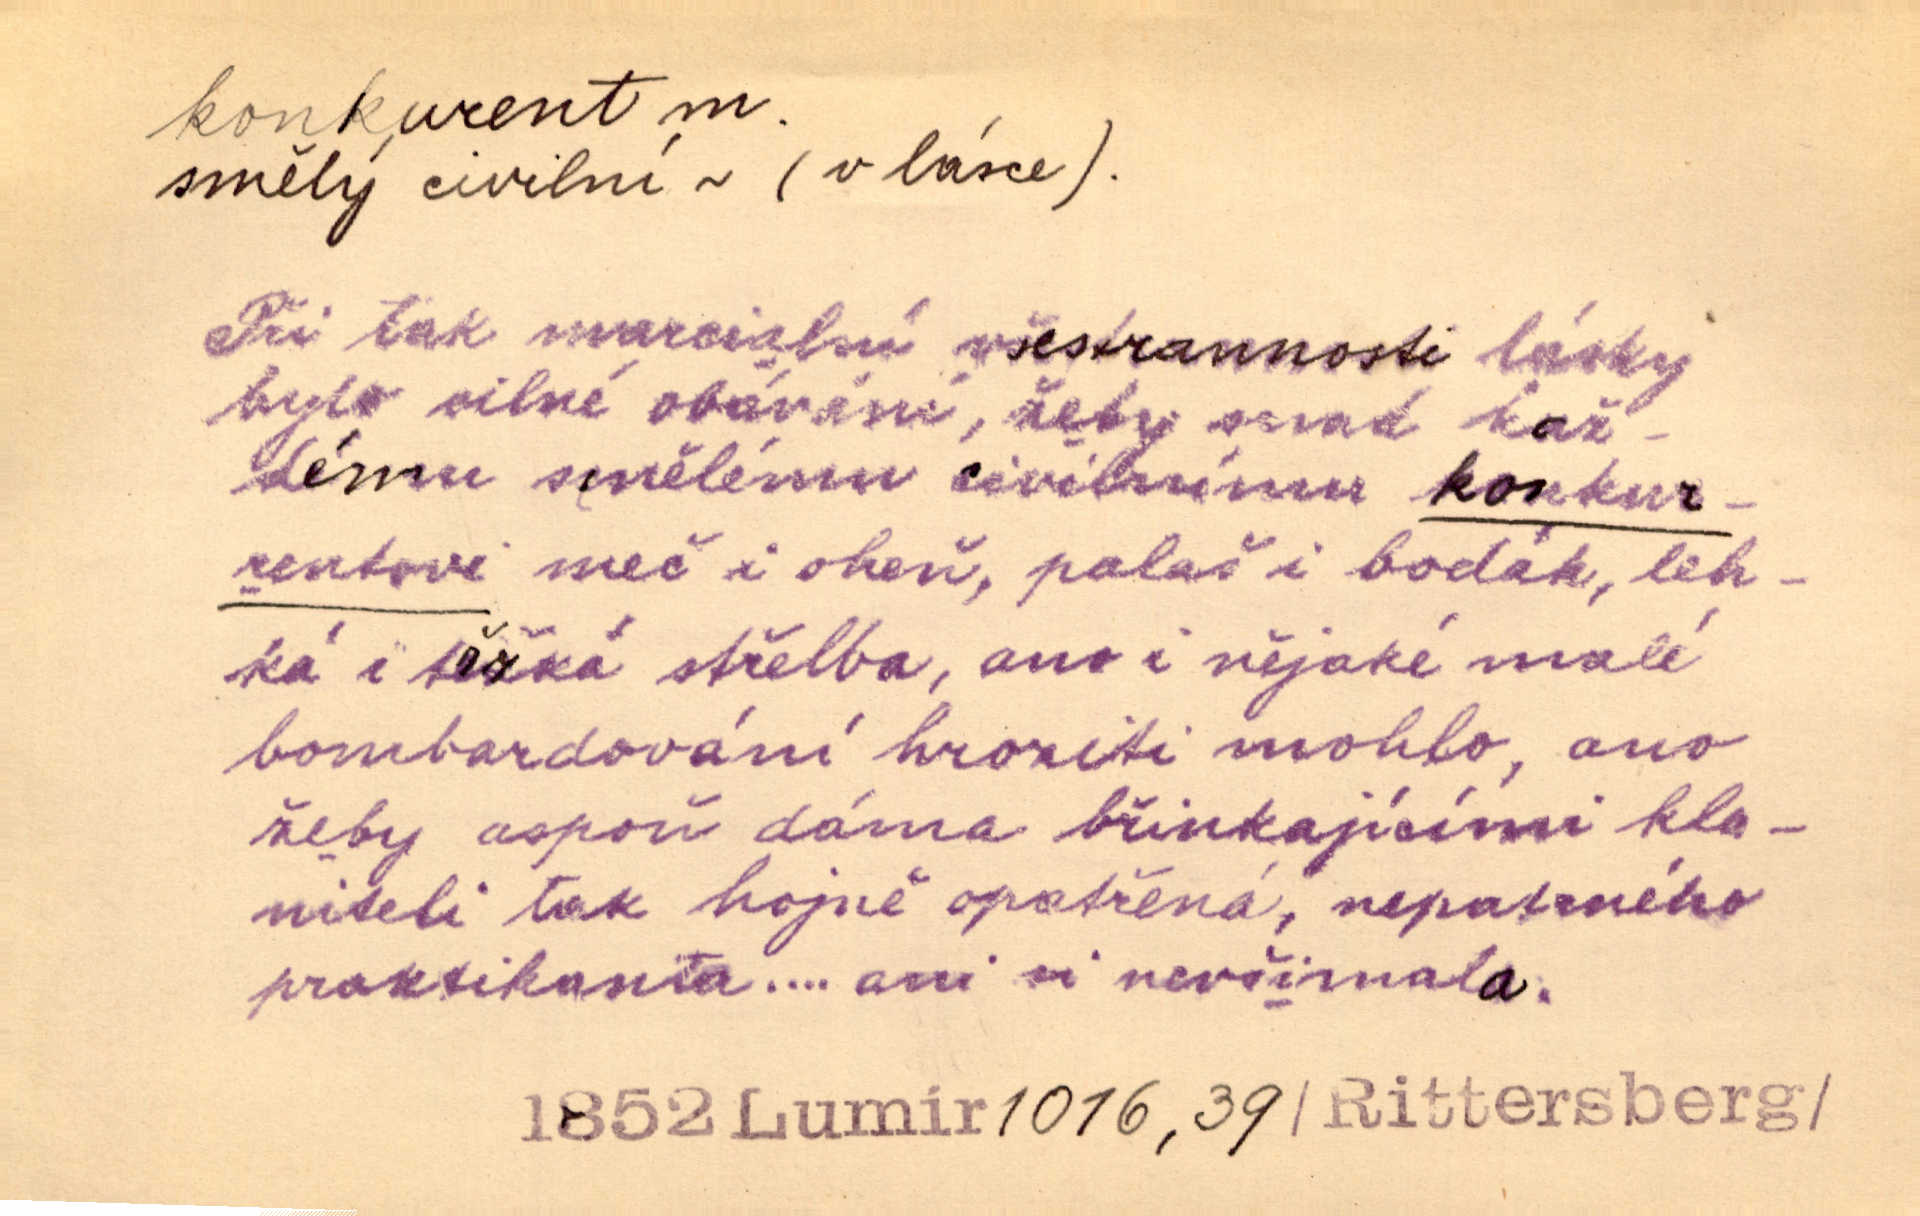 konkurent m.
smělý civilní ~ (v lásce).
Při tak marcialní všestrannosti lásky
bylo silné obávání, žeby snad kaž-
dému smělému civilnímu konkur-
rentovi meč i oheň, palaš i bodák, leh-
ká i těžká střelba, ano i nějaké malé
bombardování hroziti mohlo, ano
žeby aspoň dáma břinkajícími kla-
niteli tak hojně opatřená, nepatrného
praktikanta.... ani si nevšimala.
1852 Lumír 1016,39 /Rittersberg/